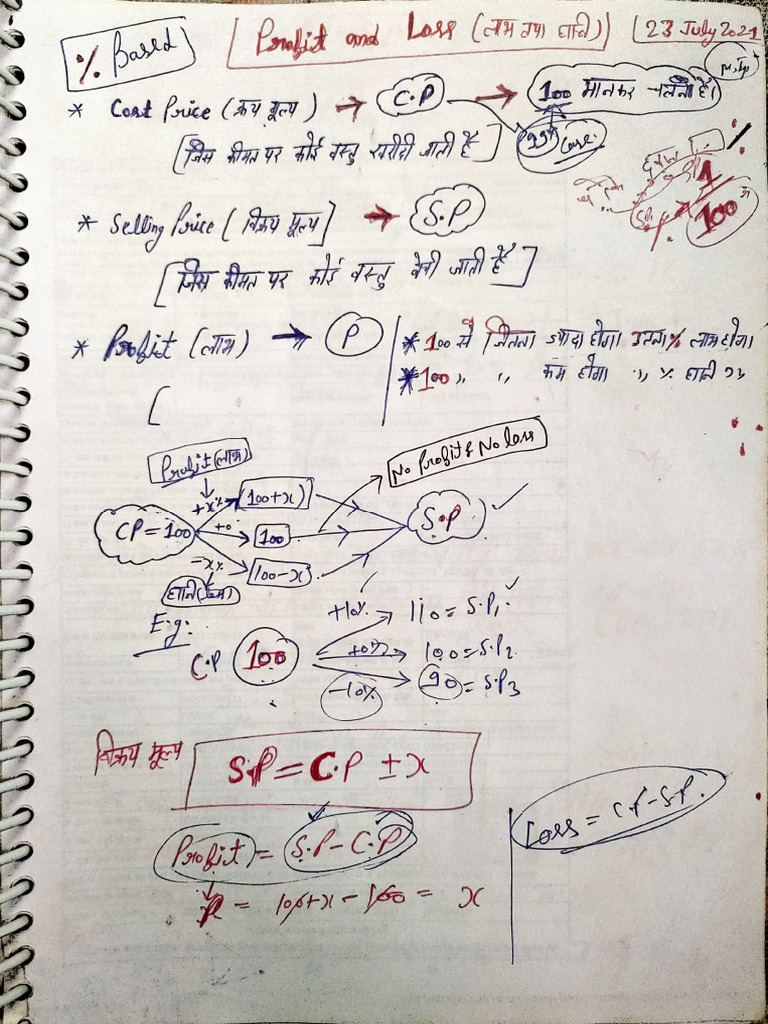 % Based
Profit and Loss (लाभ तथा हानि)
23 July 2021
* Cost Price (क्रय मूल्य) → C.P → 100 मानकर चलते हैं।
[जिस कीमत पर कोई वस्तु खरीदी जाती है]
99% Case.
1
100
* Selling Price [विक्रय मूल्य] → S.P
[जिस कीमत पर कोई वस्तु बेची जाती है]
* Profit (लाभ) → P
* 100 से जितना ज्यादा होगा उतना % लाभ होगा।
* 100 " " कम होगा " % हानि "
[
Profit (लाभ)
No Profit & No loss
+x% (100+x)
CP = 100 +0 100 S.P
-x% 100-x
हानि (Loss)
E.g:
+10% 110 = S.P1
C.P 100 +0% 100 = S.P2
-10% 90 = S.P3
विक्रय मूल्य S.P = C.P ± x
Profit = S.P - C.P
Loss = C.P - S.P.
P = 100+x - 100 = x